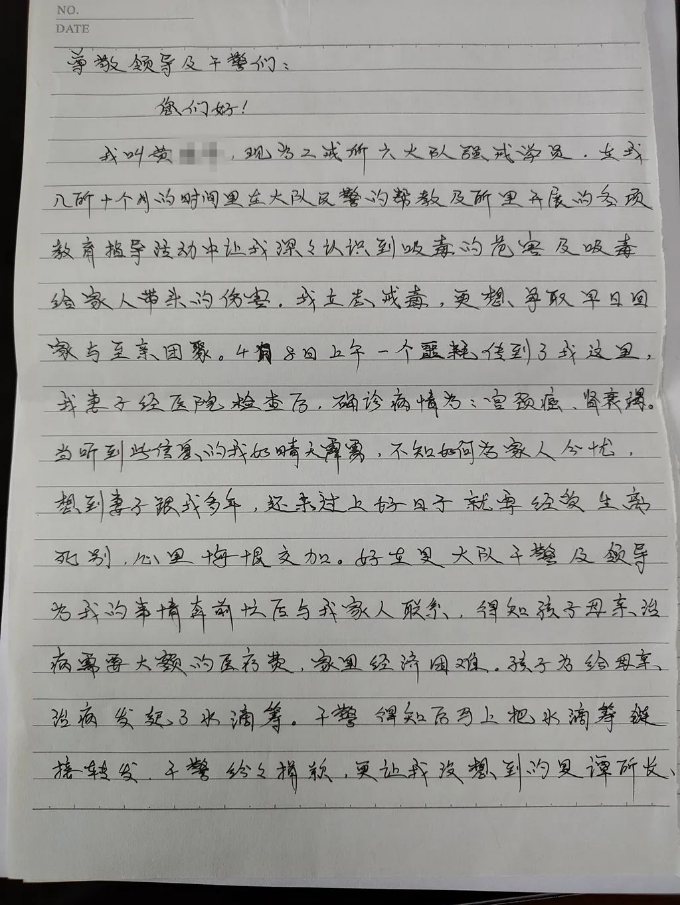 NO.
DATE
尊敬领导及干警们：
您们好！
我叫黄，现为二戒所六大队强戒学员。在我
入所十个月的时间里在大队民警的帮教及所里开展的各项
教育指导活动中让我深々认识到吸毒的危害及吸毒
给家人带来的伤害。我立志戒毒，更想争取早日回
家与至亲团聚。4月8日上午一个噩耗传到了我这里，
我妻子经医院检查后，确诊病情为：宫颈癌、肾衰竭。
当听到此信息的我如晴天霹雳，不知如何为家人分忧，
想到妻子跟我多年，还未过上好日子就要经受生离
死别，心里悔恨交加。好在是大队干警及领导
为我的事情奔前忙后与我家人联系，得知孩子母亲治
病需要大额的医疗费，家里经济困难。孩子为给母亲
治病发起了水滴筹。干警得知后马上把水滴筹链
接转发，干警纷々捐款，更让我没想到的是谭所长、